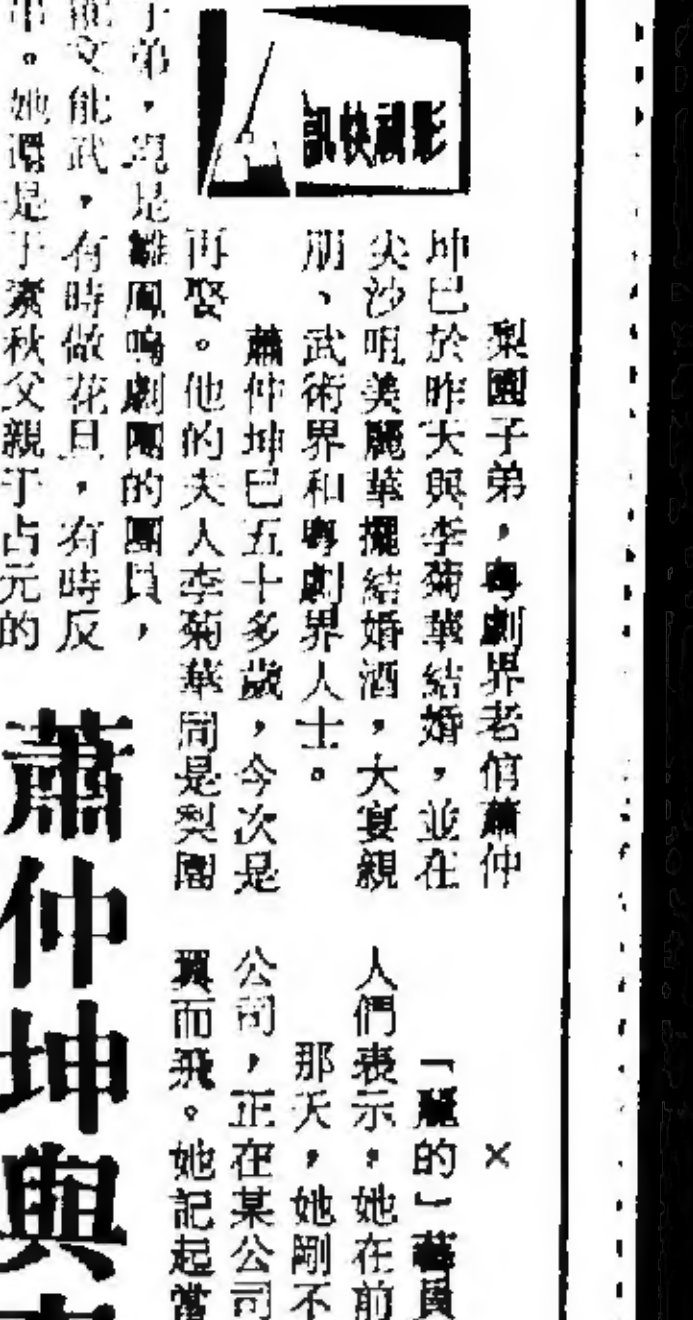 影視快訊
梨園子弟，粵劇界老倌蕭仲
坤已於昨天與李菊華結婚，並在
尖沙咀美麗華擺結婚酒，大宴親
朋、武術界和粵劇界人士。
蕭仲坤已五十多歲，今次是
再娶。他的夫人李菊華同是梨園
子弟，現是雛鳳鳴劇團的團員，
能文能武，有時做花旦，有時反
串。她還是于素秋父親于占元的
蕭仲坤與
×
「麗的」藝員
人們表示，她在前
那天，她剛不
公司，正在某公司
翼而飛。她記起當